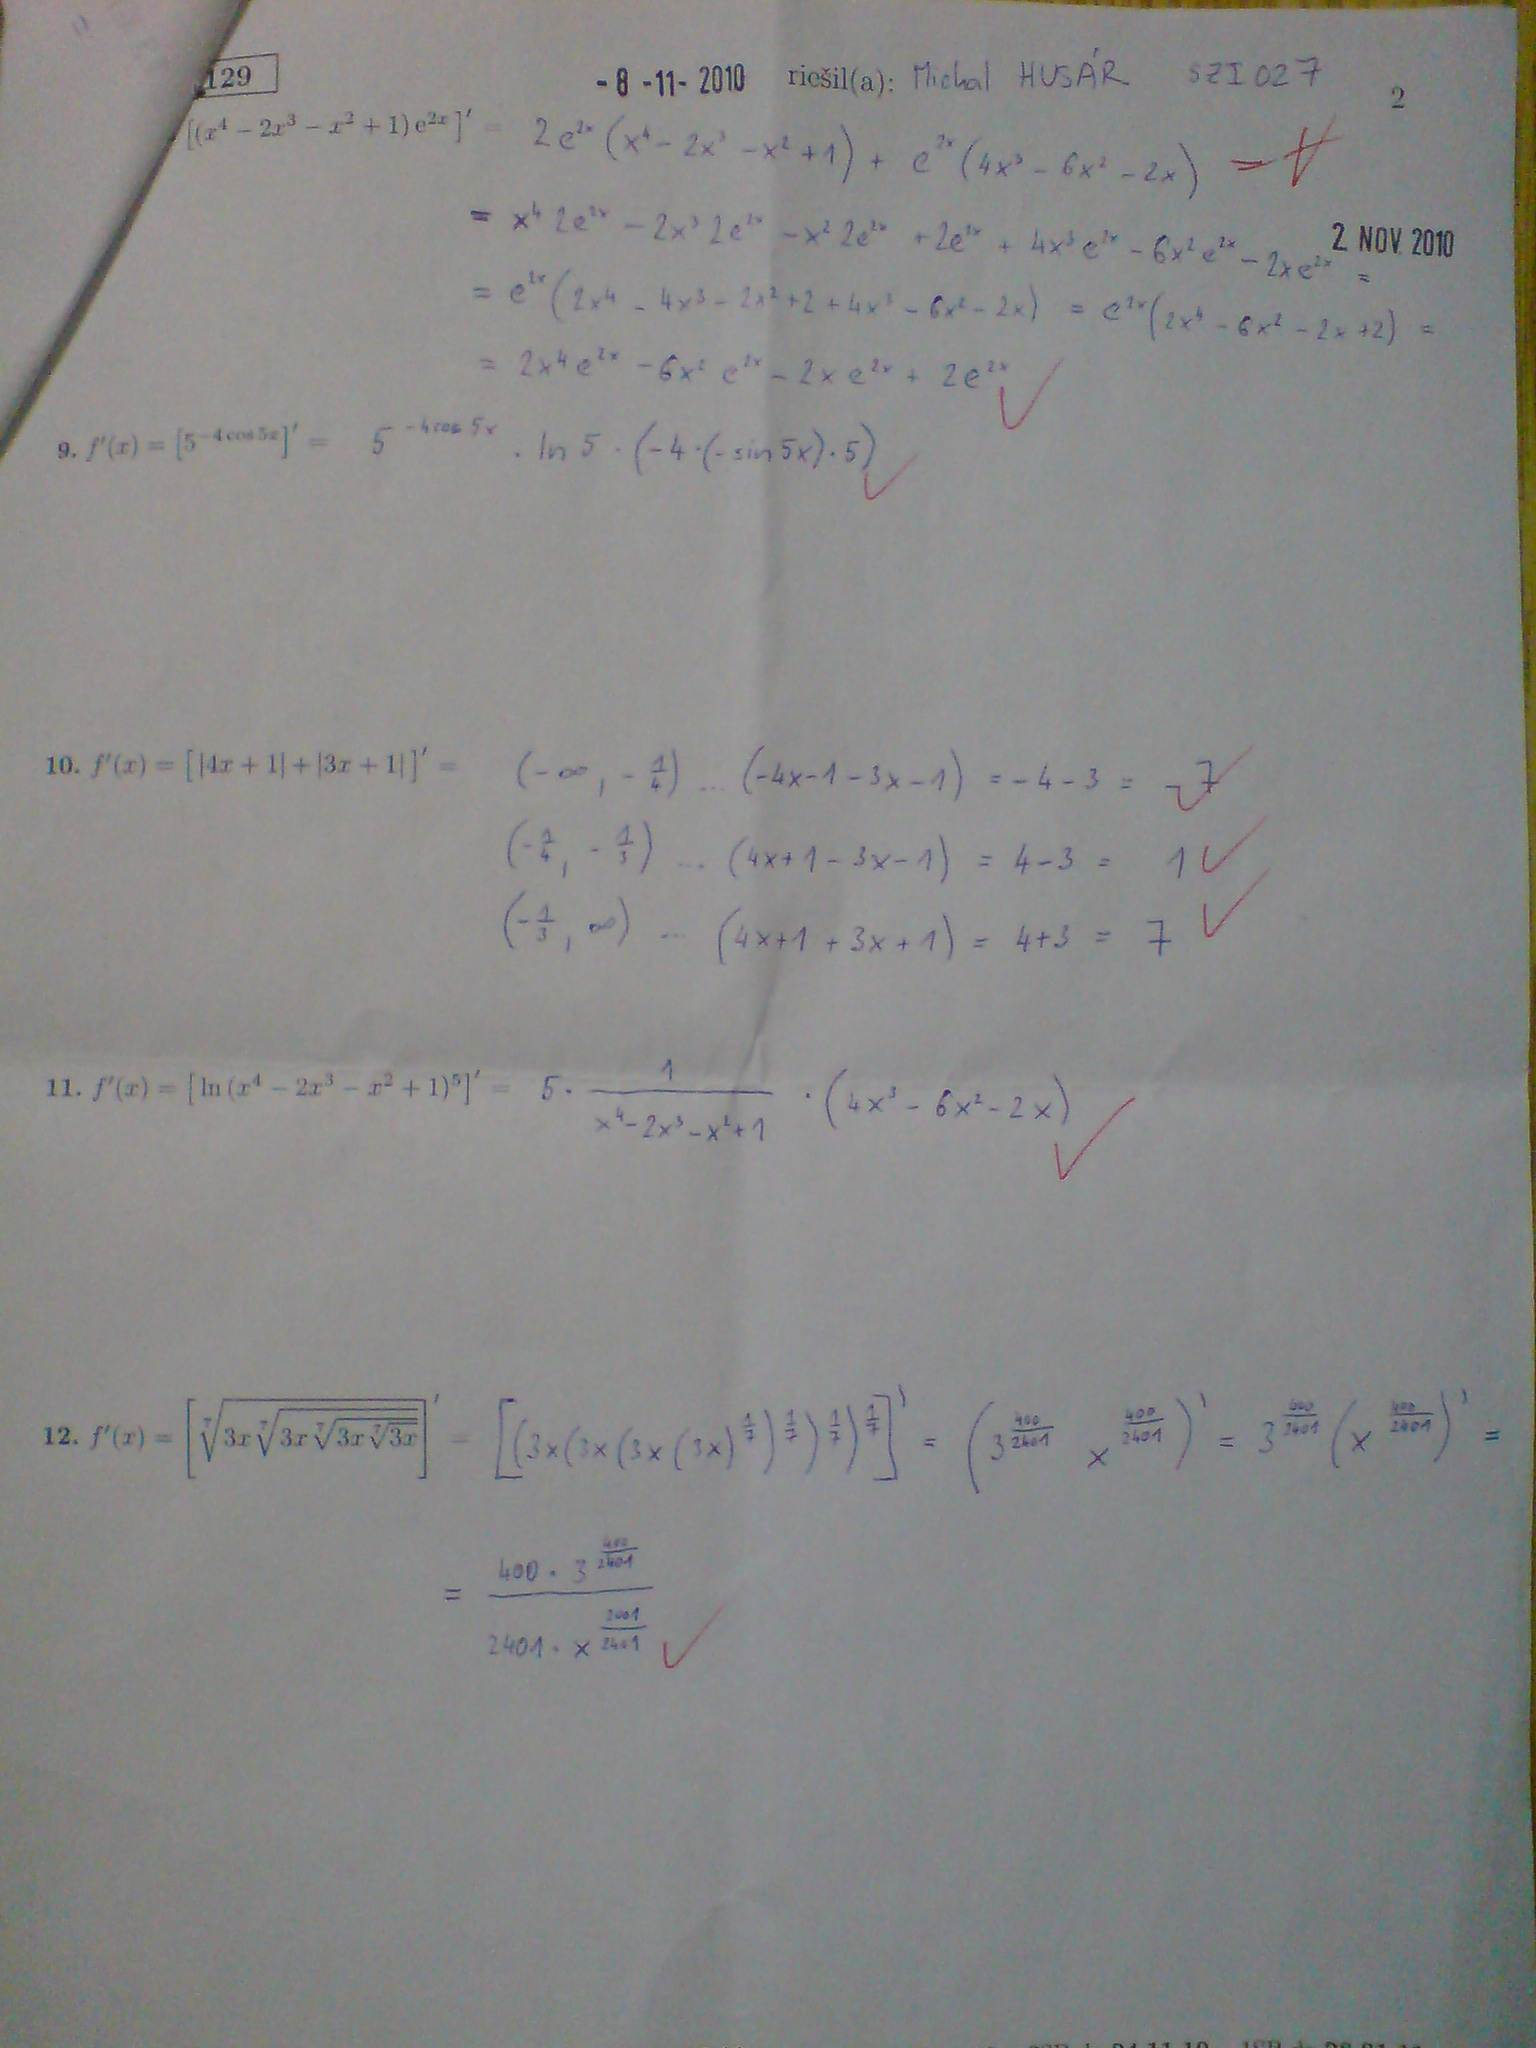 129 - 8 -11- 2010 riešil(a): Michal HUSÁR SZI027 2
[(x⁴ − 2x³ − x² + 1) e²ˣ]′ = 2e²ˣ (x⁴ − 2x³ − x² + 1) + e²ˣ (4x³ − 6x² − 2x) =
= x⁴ 2e²ˣ − 2x³ 2e²ˣ − x² 2e²ˣ + 2e²ˣ + 4x³ e²ˣ − 6x² e²ˣ − 2x e²ˣ =
2. NOV. 2010
= e²ˣ (2x⁴ − 4x³ − 2x² + 2 + 4x³ − 6x² − 2x) = e²ˣ (2x⁴ − 6x² − 2x + 2) =
= 2x⁴ e²ˣ − 6x² e²ˣ − 2x e²ˣ + 2e²ˣ
9. f′(x) = [5^(−4 cos 5x)]′ = 5^(−4 cos 5x) · ln 5 · (−4 · (− sin 5x) · 5)
10. f′(x) = [|4x + 1| + |3x + 1|]′ = (−∞, −1/4) ... (−4x−1−3x−1) = −4−3 = −7
(−1/4, −1/3) ... (4x+1−3x−1) = 4−3 = 1
(−1/3, ∞) ... (4x+1+3x+1) = 4+3 = 7
11. f′(x) = [ln (x⁴ − 2x³ − x² + 1)⁵]′ = 5 · 1/(x⁴−2x³−x²+1) · (4x³ − 6x² − 2x)
12. f′(x) = [⁷√(3x ⁷√(3x ⁷√(3x ⁷√(3x))))]′ = [(3x(3x(3x(3x)^(1/7))^(1/7))^(1/7))^(1/7)]′ = (3^(400/2401) x^(400/2401))′ = 3^(400/2401) (x^(400/2401))′ =
= (400 · 3^(400/2401))/(2401 · x^(2001/2401))